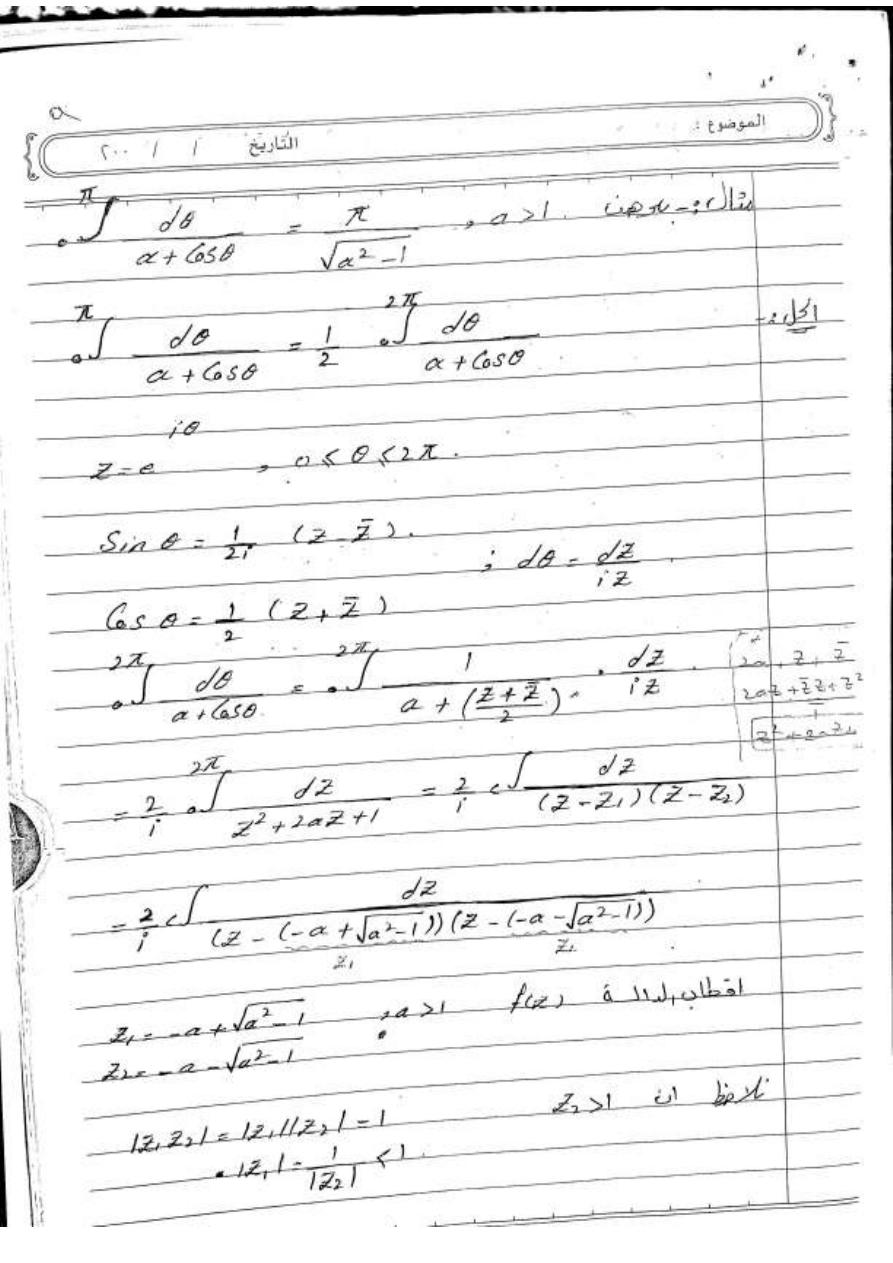 a
الموضوع :
التاريخ / / ٢٠٠
مثال :- برهن a>1 , ∫₀^π dθ/(a + Cosθ) = π/√(a² − 1)
الحل :- ∫₀^π dθ/(a + Cosθ) = 1/2 ∫₀^2π dθ/(a + Cosθ)
z = e^iθ , 0 ≤ θ ≤ 2π .
Sin θ = 1/2i (z − z̄) .
; dθ = dz/iz .
Cos θ = 1/2 (z + z̄)
∫₀^2π dθ/(a + Cosθ) = ∫₀^2π 1/(a + ((z + z̄)/2)) · dz/iz .
2a + z + z̄
2az + z̄z + z²
1
= 2/i ∫₀^2π dz/(z² + 2az + 1) = 2/i c∫ dz/((z − z₁)(z − z₂))
= 2/i c∫ dz/((z − (−a + √(a² − 1)))(z − (−a − √(a² − 1))))
z₁ z₂
اقطاب الدالة f(z) , a>1
z₁ = −a + √(a² − 1)
z₂ = −a − √(a² − 1)
نلاحظ ان z₂>1
|z₁ z₂| = |z₁||z₂| = 1
|z₁| = 1/|z₂| < 1 .